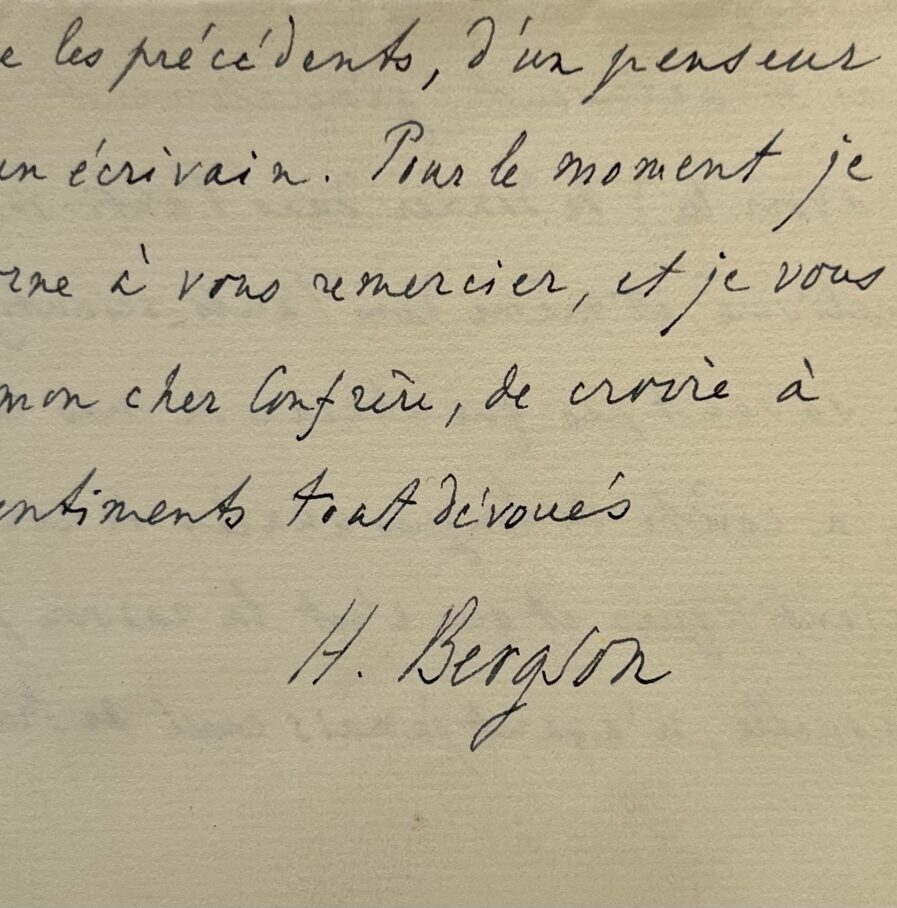 e les précédents, d'un penseur
un écrivain. Pour le moment je
rne à vous remercier, et je vous
mon cher Confrère, de croire à
entiments tout dévoués
H. Bergson